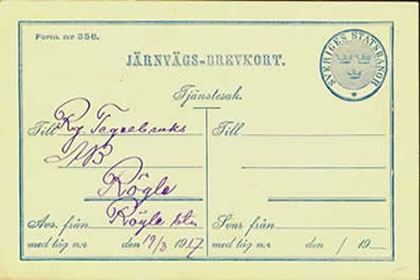 Form. nr 356.
JÄRNVÄGS-BREVKORT.
SVERIGES STATSBANOR
Tjänstesak.
Till Rg. Tegelbruks
AB
Rögle
Avs. från Rögle stn
med tåg n:r den 19/3 1917
Till
Svar från
med tåg n:r den / 19